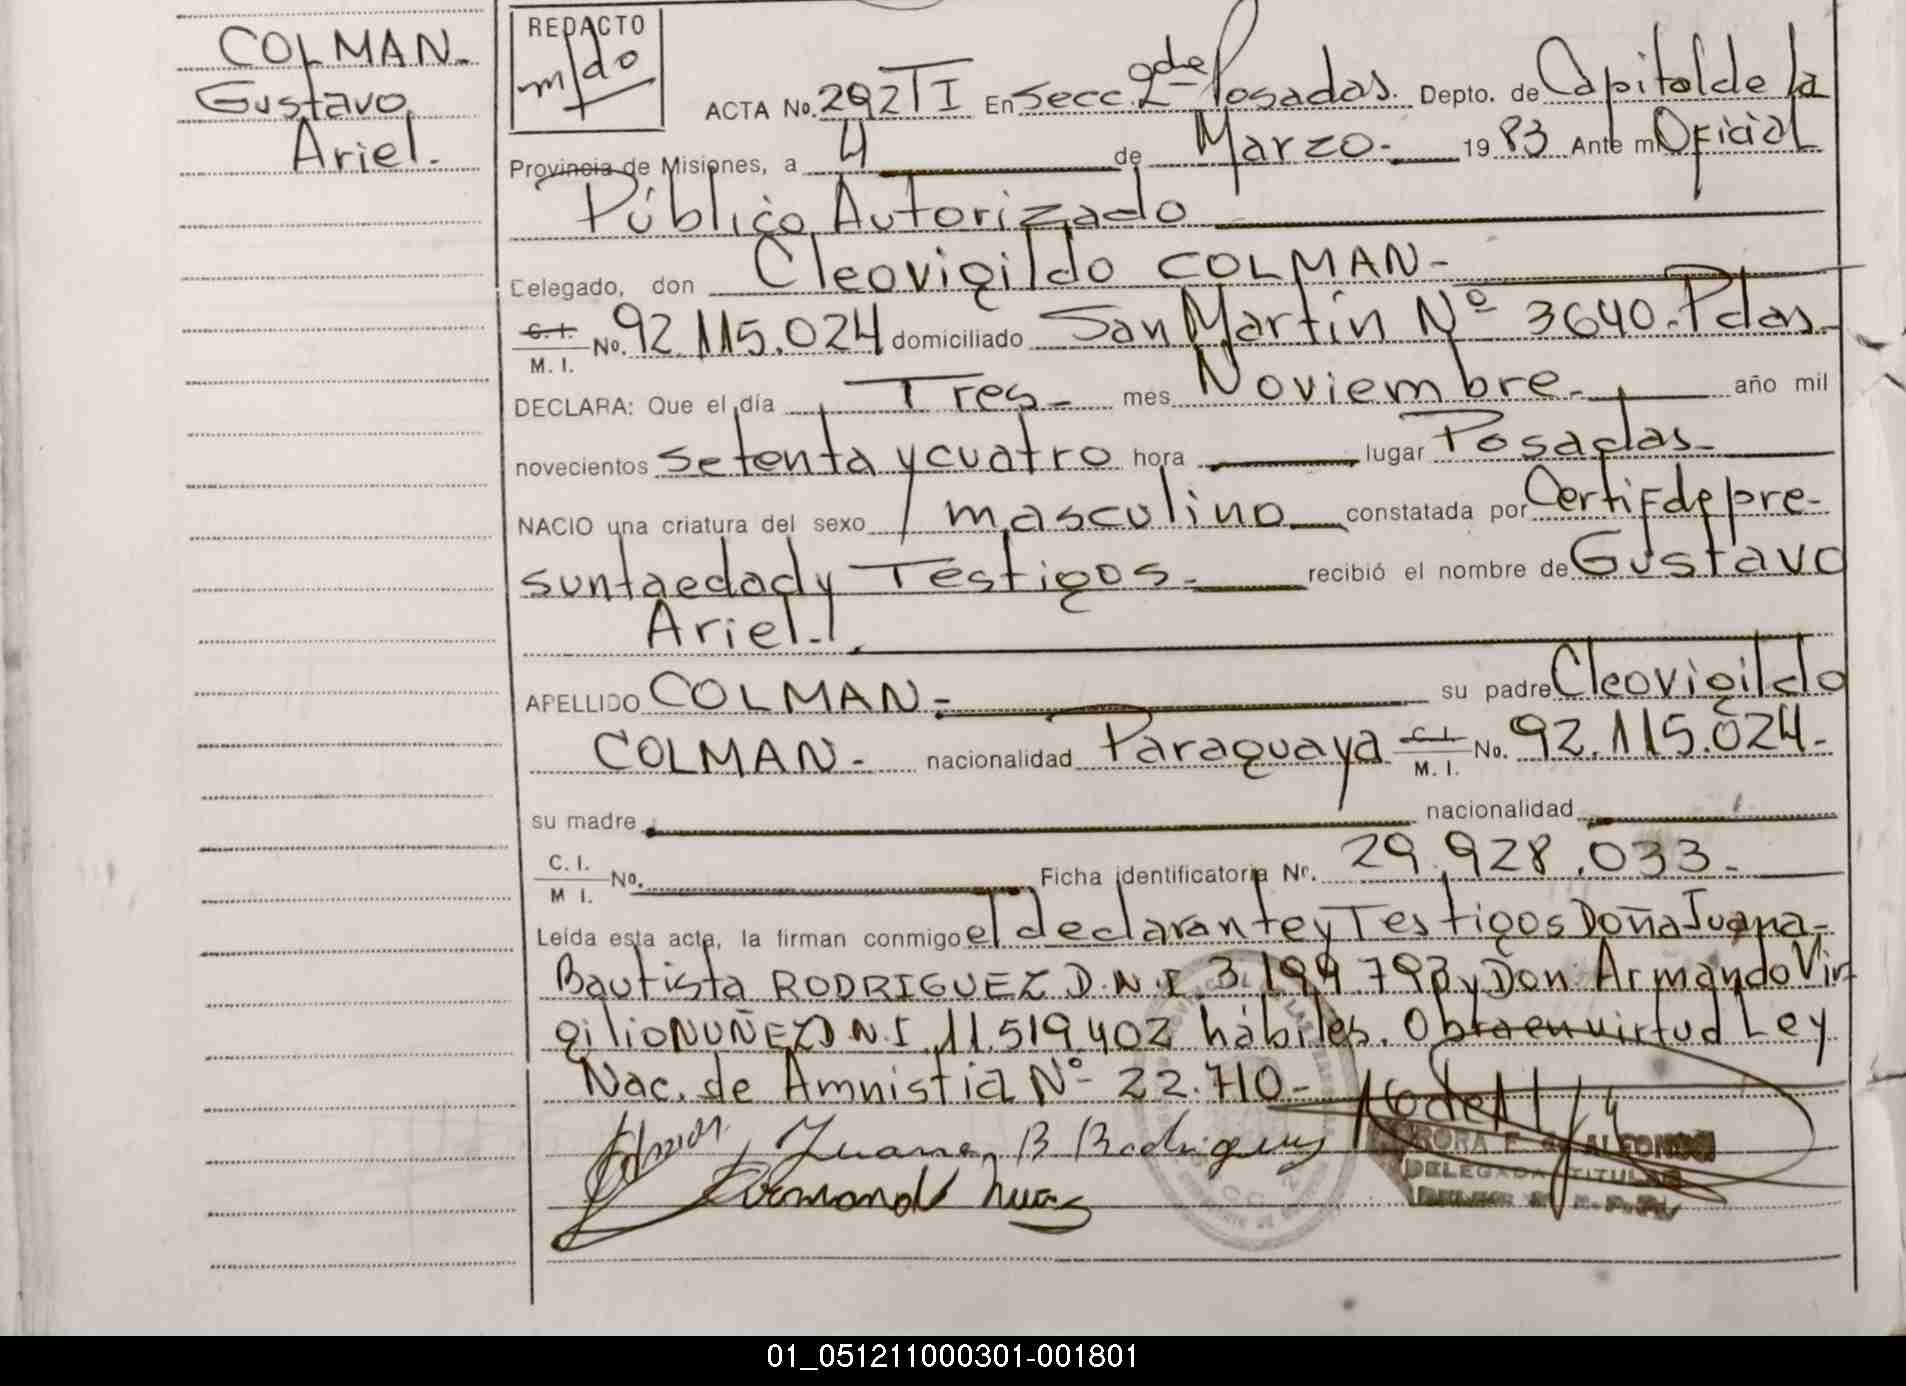 COLMAN-
Gustavo
Ariel.
REDACTO
m/do
ACTA No. 292 TI En Secc. 2da Posadas. Depto. de Capital de la
Provincia de Misiones, a 4 de Marzo- 1983 Ante mi Oficial
Público Autorizado
Delegado, don Cleovigildo COLMAN-
C. I.
M. I. No. 92.115.024 domiciliado San Martín Nº 3640. Pdas-
DECLARA: Que el día Tres- mes Noviembre- año mil
novecientos setenta y cuatro hora lugar Posadas-
NACIO una criatura del sexo masculino constatada por Certif de pre-
sunta edad y Testigos- recibió el nombre de Gustavo
Ariel.
APELLIDO COLMAN- su padre Cleovigildo
COLMAN- nacionalidad Paraguaya C. I. M. I. No. 92.115.024-
su madre nacionalidad
C. I.
M I. No. Ficha identificatoria Nr. 29.928.033-
Leída esta acta, la firman conmigo el declarante y Testigos Doña Juana-
Bautista RODRIGUEZ D.N.I. 3.199.793 y Don Armando Vir
gilio NUÑEZ D.N.I. 11.519.402 hábiles. Obra en virtud Ley
Nac. de Amnistia Nº 22.710-
Juana B Rodriguez
DELEGADA TITULAR
01_051211000301-001801